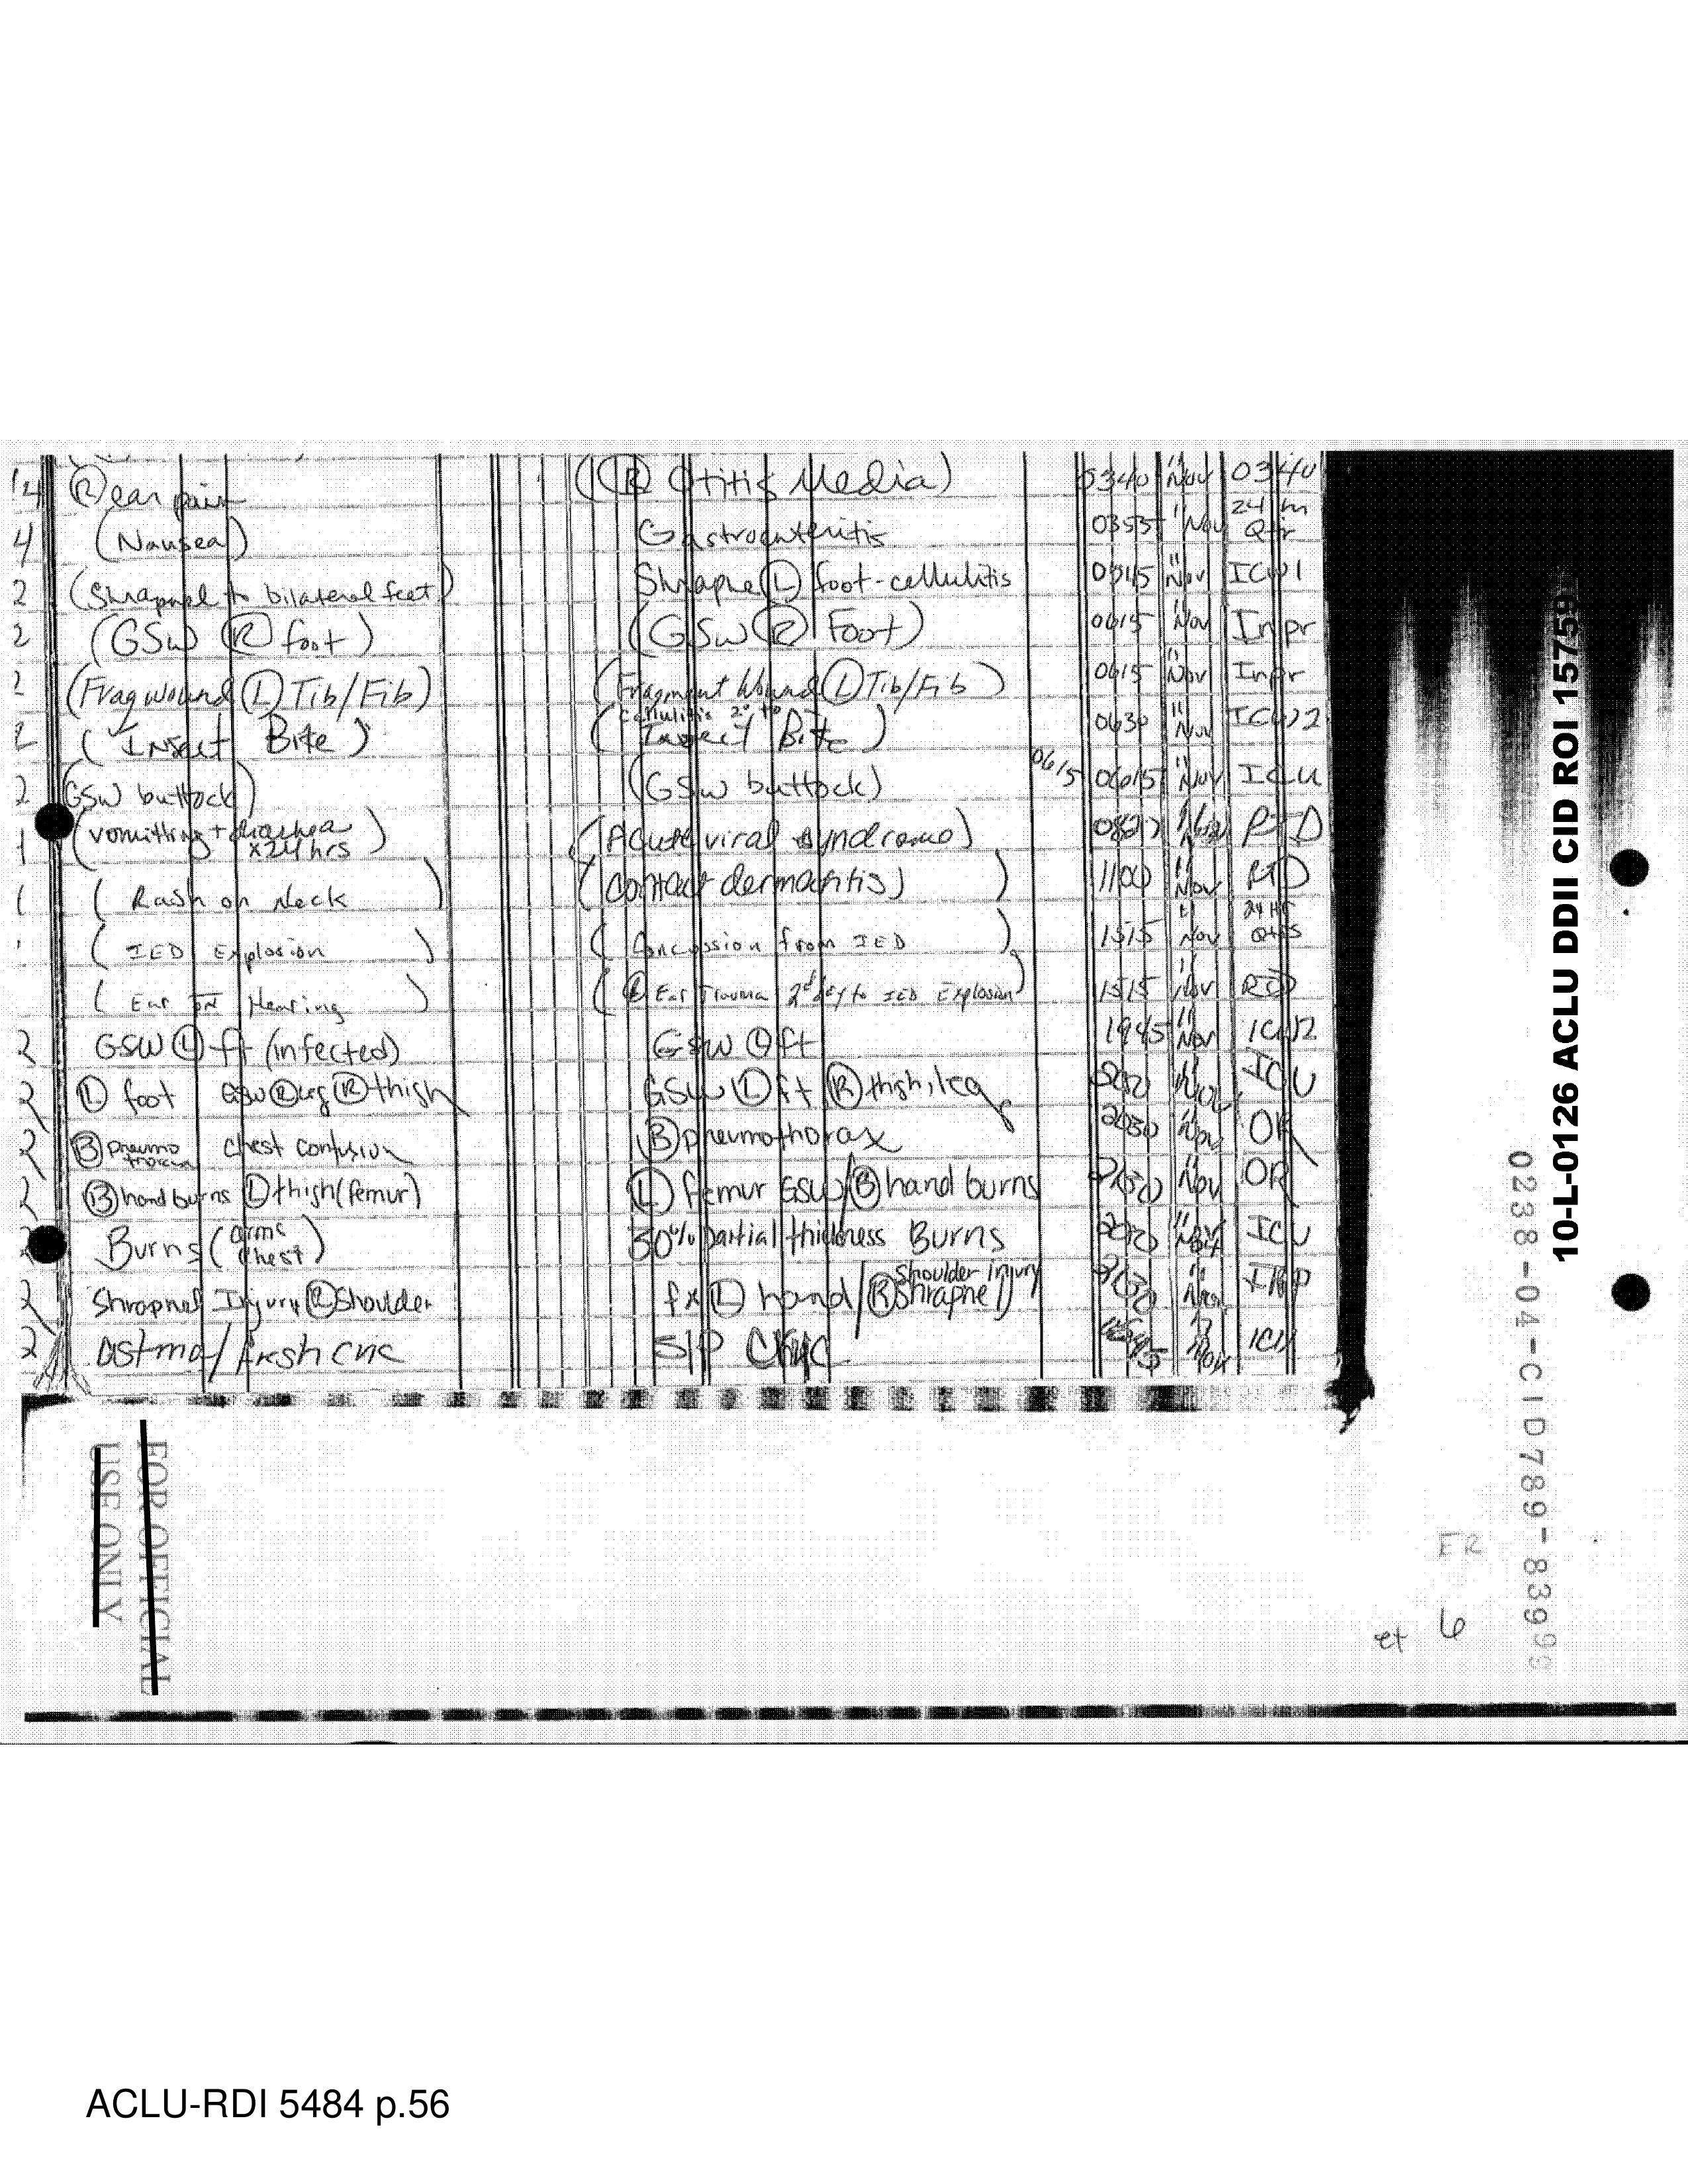 4 (R) ear pain ((R) Otitis Media) 0340 11 Nov 0340
4 (Nausea) Gastroenteritis 0355 11 Nov 24 hr Qtr
2 (Shrapnel to bilateral feet) Shrapnel (L) foot-cellulitis 11 Nov ICW1
2 (GSW (R) foot) (GSW (R) Foot) 0615 11 Nov Inpr
2 (Frag wound (L) Tib/Fib) (Fragment Wound (L) Tib/Fib) 0615 11 Nov Inpr
2 (Insect Bite) (Cellulitis 2° to Insect Bite) 0630 11 Nov ICW2
2 (GSW buttock) (GSW buttock) 0615 0615 11 Nov ICU
1 (vomitting + diarrhea x24 hrs) (Acute viral syndrome) 11 Nov RTD
1 (Rash on Neck) (Contact dermatitis) 1100 11 Nov RTD
(IED Explosion) (Concussion from IED) 1515 11 Nov 24 Hr Qtrs
(Ear Hearing) Ear Trauma 2nd'ry to IED Explosion) 1515 11 Nov RTD
2 GSW (L) ft (infected) GSW (L) ft 1945 11 Nov ICW2
2 (L) foot GSW (R) leg (R) thigh GSW (L) ft (R) thigh, leg 11 Nov ICU
2 (B) pneumo thorax Chest Contusion (B) pneumothorax 2030 11 Nov OR
2 (B) hand burns (L) thigh (femur) (L) femur GSW/(B) hand burns 11 Nov OR
Burns (arms chest) 30% partial thickness Burns 11 Nov ICU
2 Shrapnel Injury (R) Shoulder fx (L) hand/(R) Shoulder injury Shrapnel 11 Nov
2 S/P Cric Nov ICU
FOR OFFICIAL
USE ONLY
10-L-0126 ACLU DDII CID ROI 15758
0238-04-CID789-83999
ER
et 6
ACLU-RDI 5484 p.56